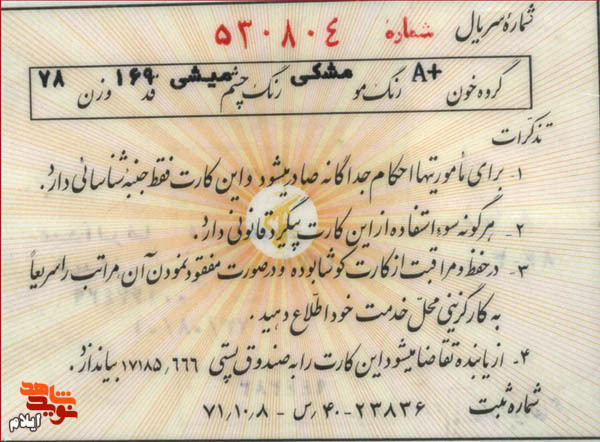 شماره سریال شماره ۵۳۰۸۰۴
گروه خون A+ رنگ مو مشکی رنگ چشم میشی قد ۱۶۹ وزن ۷۸
تذکرات
۱- برای مأموریتها احکام جداگانه صادر میشود و این کارت فقط جنبه شناسائی دارد.
۲- هرگونه سوء استفاده از این کارت پیگرد قانونی دارد.
۳- در حفظ و مراقبت از کارت کوشا بوده و در صورت مفقود نمودن آن مراتب را سریعاً
به کارگزینی محل خدمت خود اطلاع دهید.
۴- از یابنده تقاضا میشود این کارت را به صندوق پستی ۶۶۶/۱۷۱۸۵ بیاندازد.
شماره ثبت ۲۳۸۳۶-۴۰/س - ۷۱/۱۰/۸
نوید شاهد
ایلام